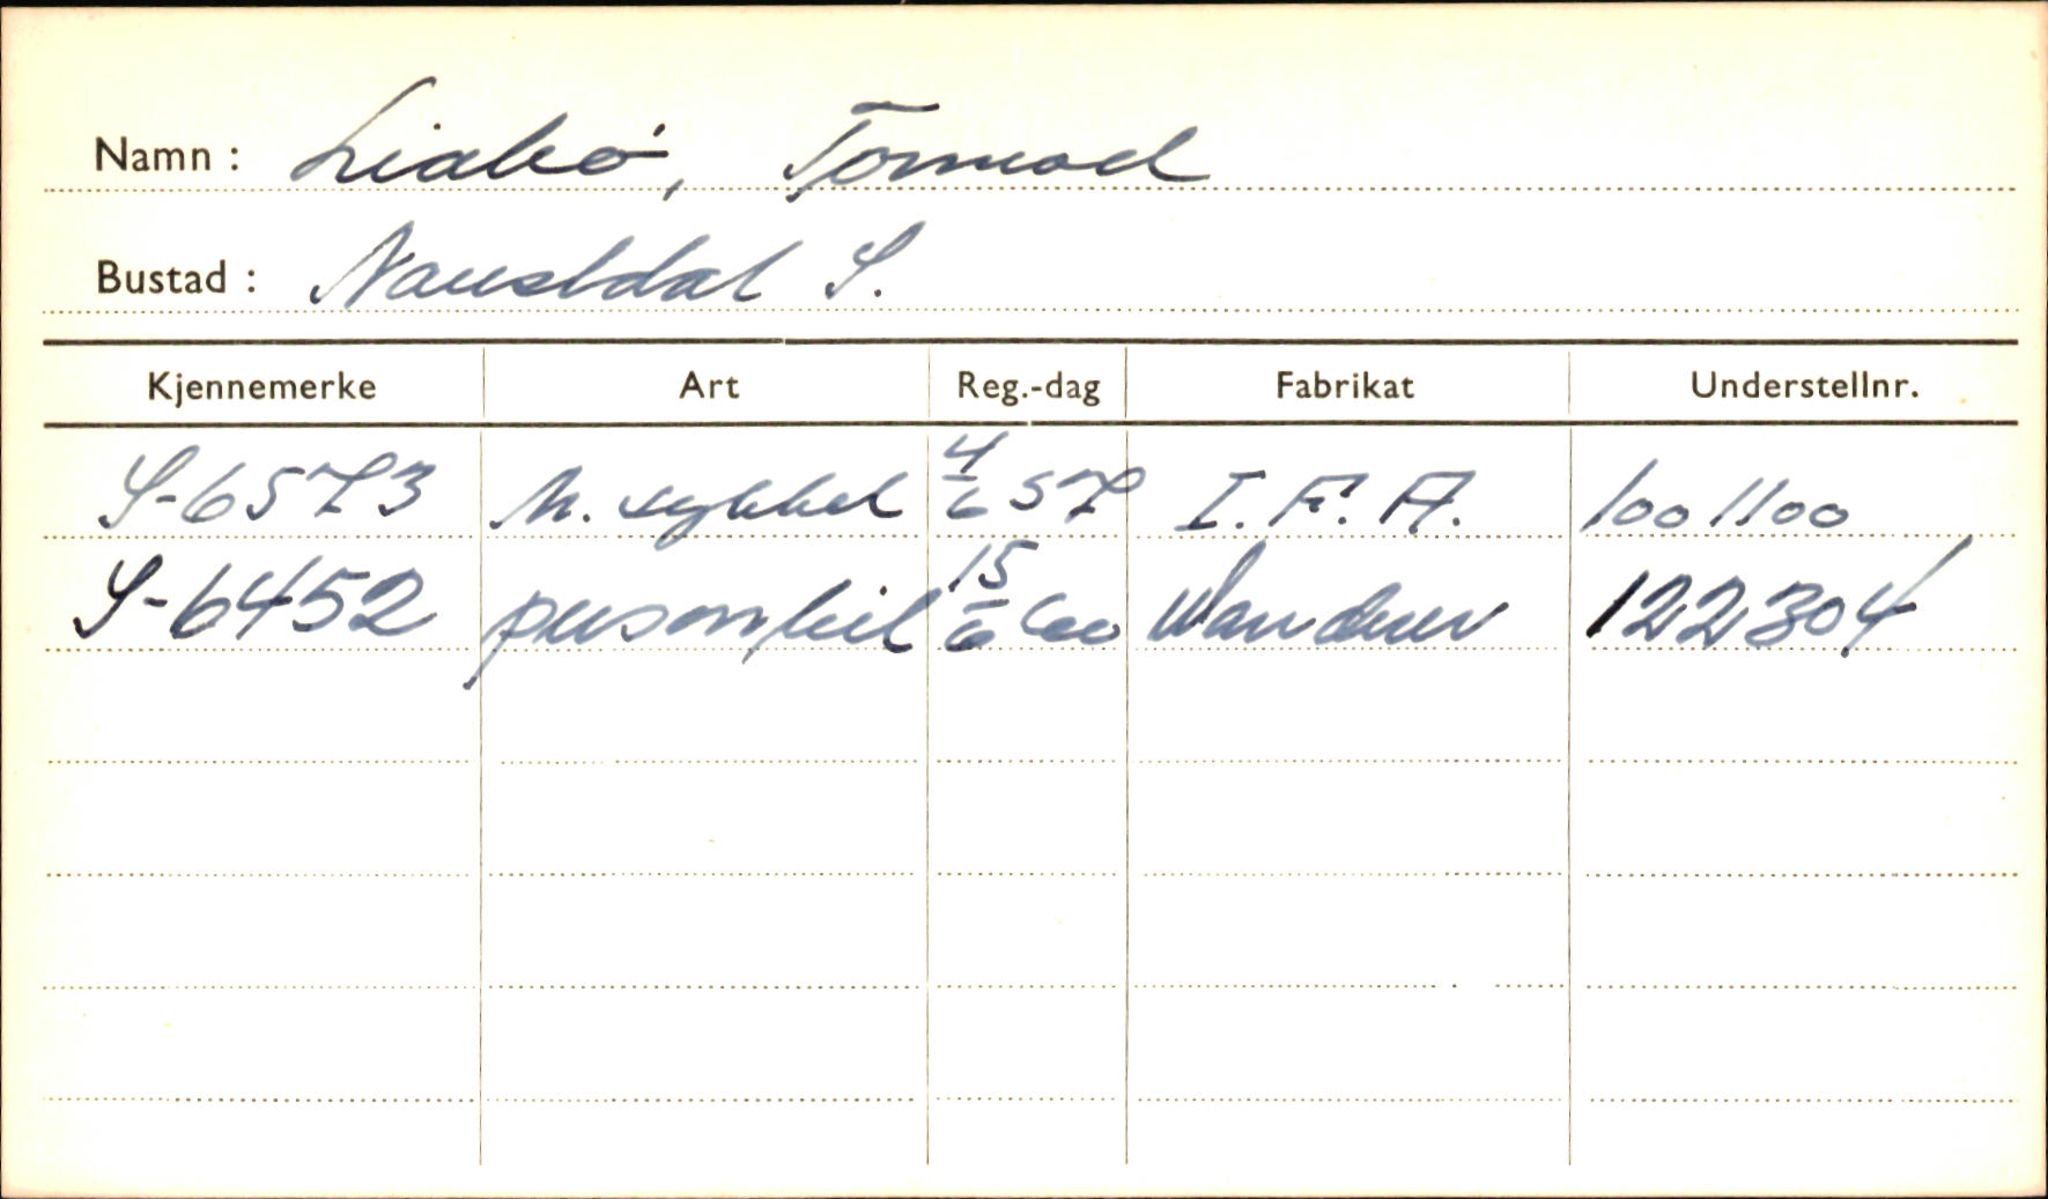 Namn : Liabø, Tormod
Bustad : Naustdal S.
Kjennemerke Art Reg.-dag Fabrikat Understellnr.
S-6573 M. sykkel 4/6 57 I. F. A. 1001100
S-6452 personbil 15/6 60 Wanderer 122304